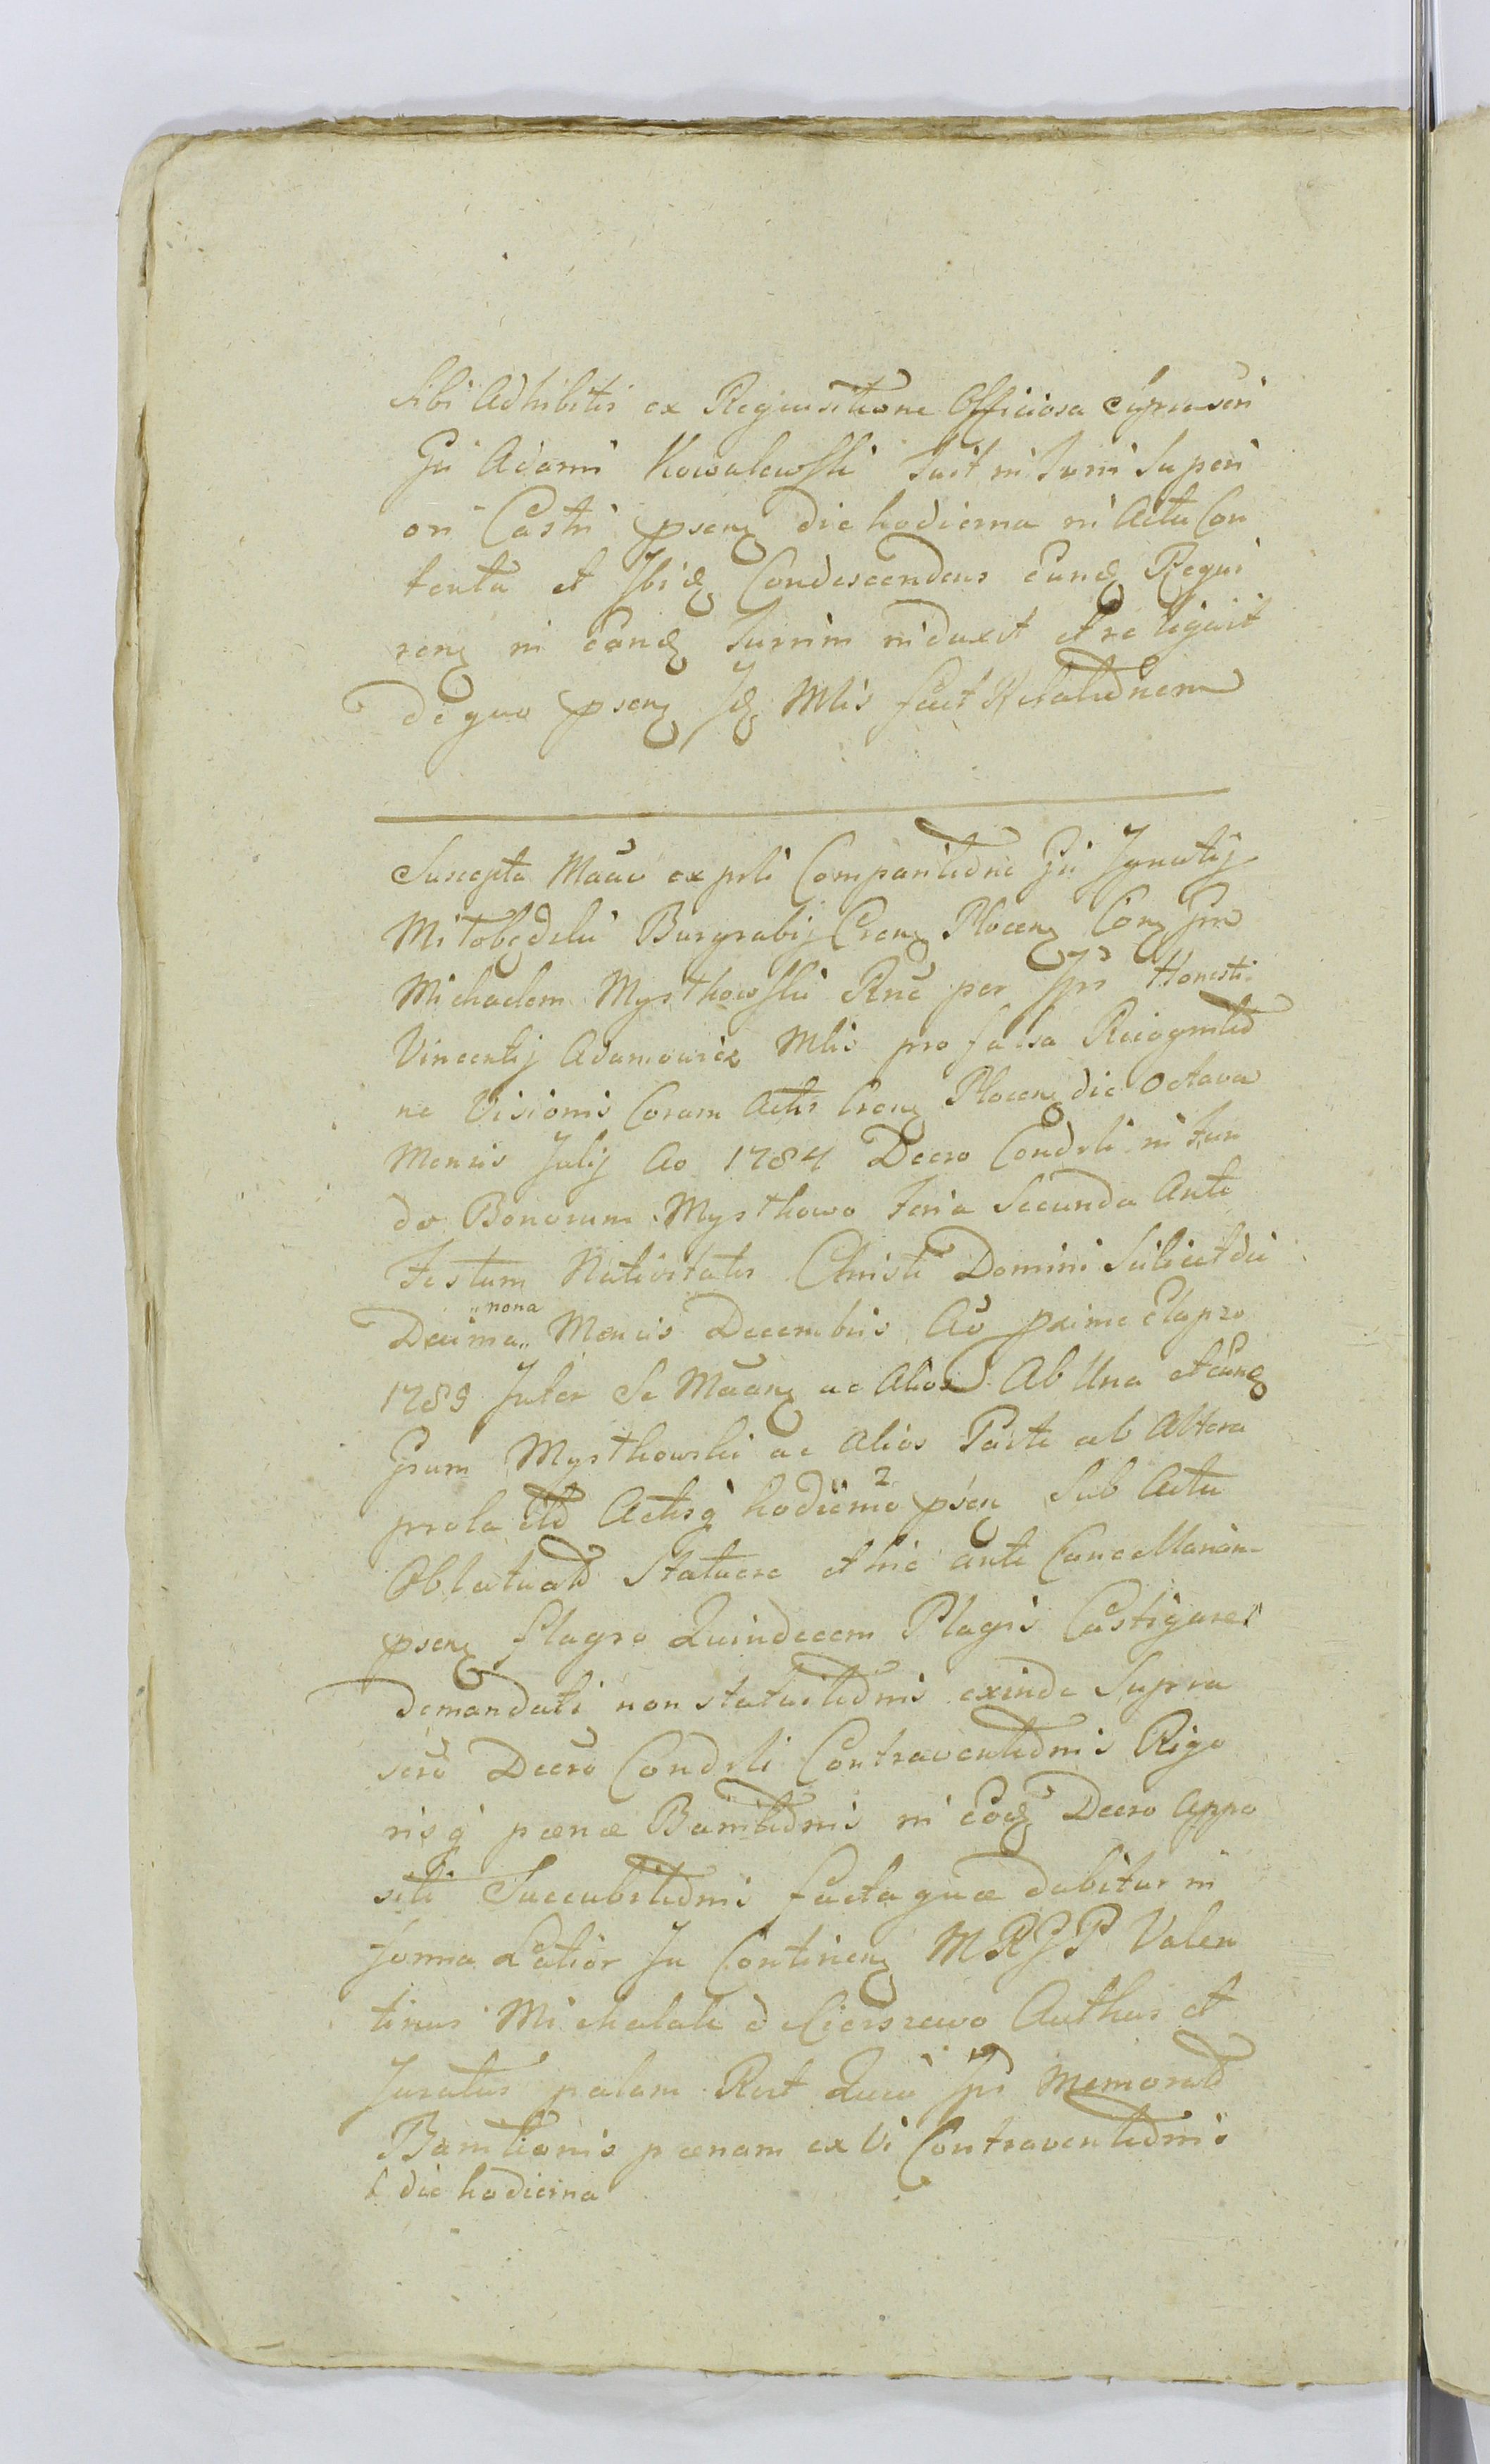 sibi Adhibitis ex Requisitione Officiosa
Gsi Adami Kowalewski fuit in Turri Superi
ori Castri psenʒ die hodierna in Actu Con
tenta et Ibidʒ Condescendens eundʒ Requi
renʒ in eandʒ Turrim induxit et reliquit
de quo psenʒ Idʒ Mlis fecit Relatiōnem
Suscepta Mauu ex psli Comparitiōne Gsi Ignatij
Burgrabij Crenʒ Plocenʒ Conʒ Gsm
Michaelem Mysthowski Rnē per Ips Honesti
Vincentij Adamowicz Mlis pro falsa Recognitiō
ne Visionis Coram Actis Crenʒ Plocenʒ die Octava
Mensis Julij Ao 1784 Decro Condsli in fun
do Bonorum Mysthowo Feria Secunda Ante
Festum Nativitatis Christi Domini Scilicet die
Decima „nona„ Mensis Decembris Ao pxime Elapso
1789 Inter Se Mauenʒ ac Alios Ab Una et eundʒ
Gsum Mysthowski ac Alios Parte ab Altera
prola itd Actisq̀ hodierno psen Sub Actu
Oblatuatd Statuere et hic ante Cancellariam
psenʒ flagro Quindecem Plagis Castigare
demandati non statuitiōnis exinde Supra
scro Decro Condsli Contraventiōnis Rigo
risq̀ pœnæ Banitiōnis in eodʒ Decro Appo
siti Succubitiōnis facta quæ dabitur in
forma Latior In Continenʒ MRGP Valen
tinus Michalak d Cierszewo Authus et
Juratus palam Rct Quia Ips Memoratd
Banitionis pœnam ex Vi Contraventiōnis
die hodierna